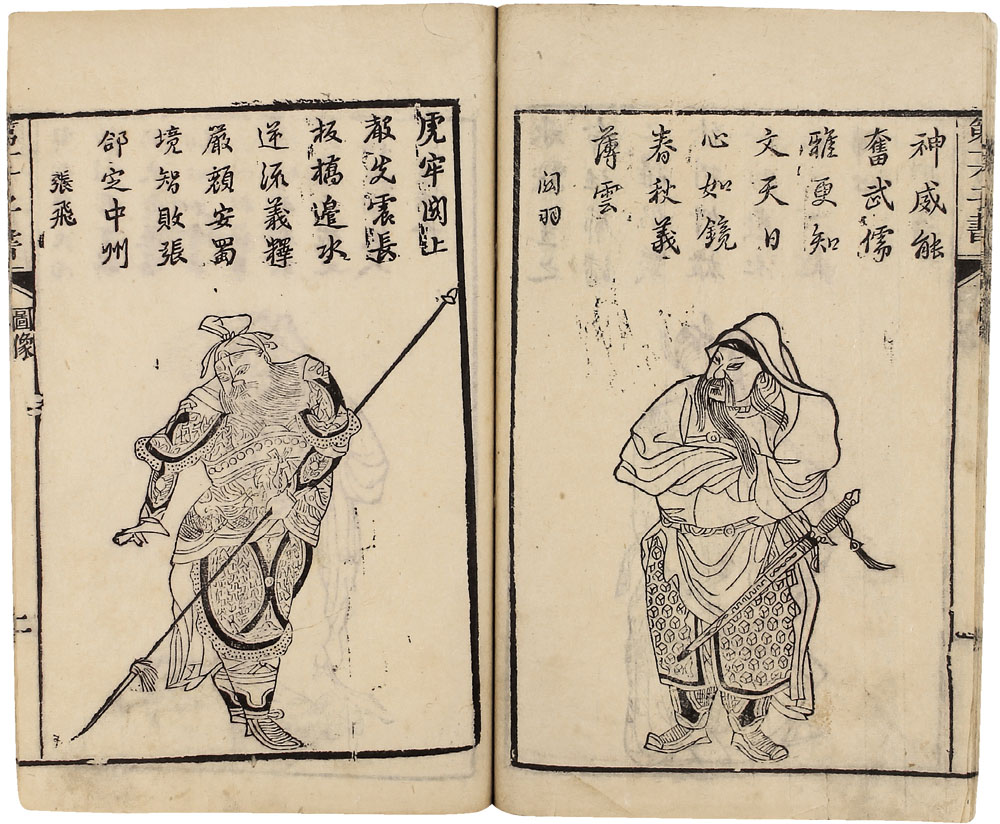 神威能
奮武儒
雅更知
文天日
心如鏡
春秋義
薄雲
関羽
虎牢関上
聲先震長
板橋邉水
逆流義釋
嚴顔安蜀
境智敗張
郃定中州
張飛
第一才子書
圖像
二